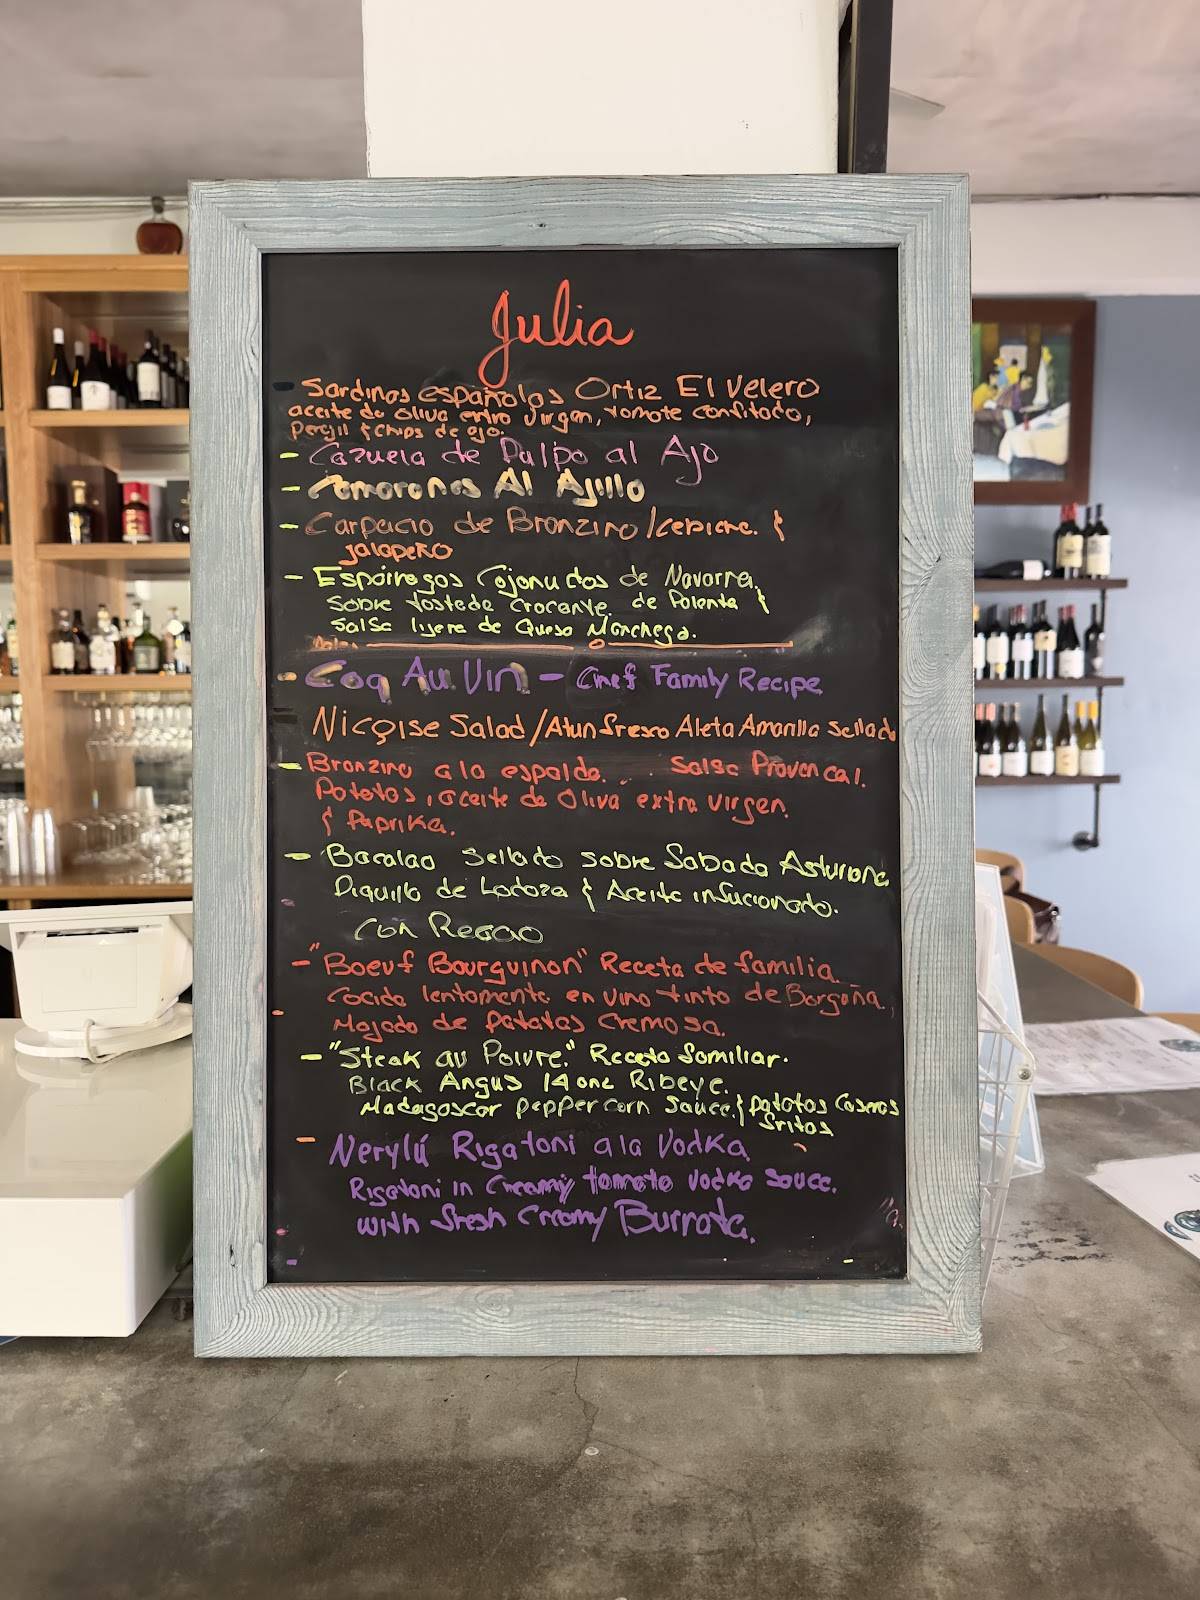 Julia
- Sardinas españolas Ortiz El Velero
aceite de oliva extra virgen, tomate confitado,
perejil & chips de ajo.
- Cazuela de Pulpo al Ajo
- Camarones Al Ajillo
- Carpacio de Bronzino/cebiche. &
jalapeño
- Espárragos Cojonudos de Navarra,
sobre tostada crocante de Polenta &
salsa ligera de Queso Manchego.
- Coq Au Vin - Chef Family Recipe
Niçoise Salad/Atun fresco Aleta Amarilla sellado
- Bronzino a la espalda... Salsa Provencal.
Patatas, aceite de Oliva extra virgen.
& Paprika.
- Bacalao sellado sobre Sabada Asturiana
Piquillo de Lodoza & Aceite infucionado.
con Recao
- "Boeuf Bourguinon" Receta de familia
cocida lentamente en vino tinto de Borgoña,
Majado de patatas cremosa.
- "Steak au Poivre." Receta familiar.
Black Angus 14 onz Ribeye.
Madagascar peppercorn sauce. & patatas Caseras
fritas
- Nerylú Rigatoni a la Vodka
Rigatoni in Creamy tomato vodka sauce.
with fresh Creamy Burrata.